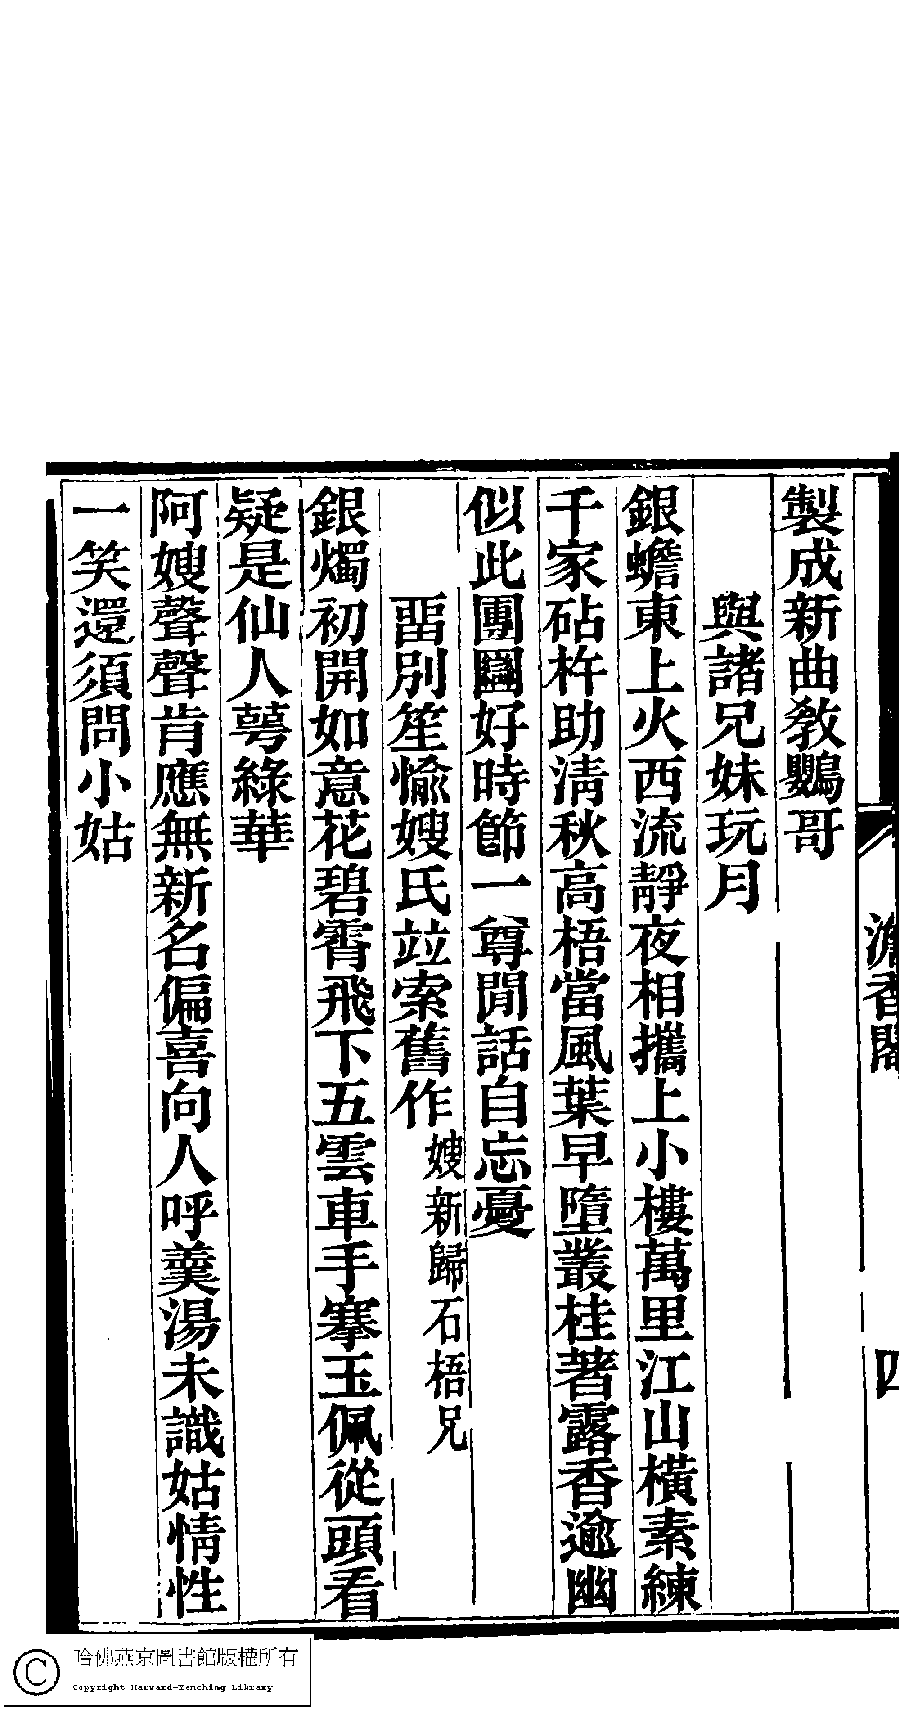 製成新曲敎鸚哥
與諸兄妹玩月
銀蟾東上火西流靜夜相攜上小樓萬里江山橫素練
千家砧杵助淸秋高梧當風葉早墮叢桂著露香逾幽
似此團圞好時節一尊閒話自忘憂
畱別笙愉嫂氏竝索舊作
嫂新歸石梧兄
銀燭初開如意花碧霄飛下五雲車手搴玉佩從頭看
疑是仙人萼綠華
阿嫂聲聲肯應無新名偏喜向人呼羹湯未識姑情性
一笑還須問小姑
澹香閣
四
哈佛燕京圖書館版權所有
Copyright Harvard-Yenching Library